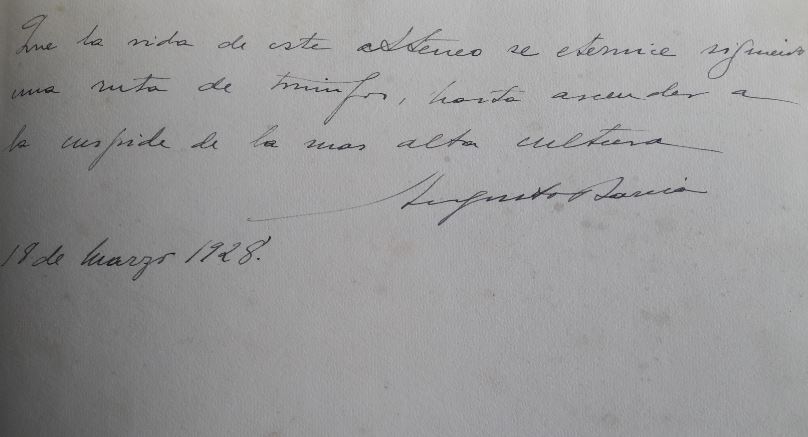 Que la vida de este Ateneo se eternice siguiendo
una ruta de triunfos, hasta ascender a
la cuspide de la mas alta cultura
Augusto Barcia
18 de Marzo 1928.